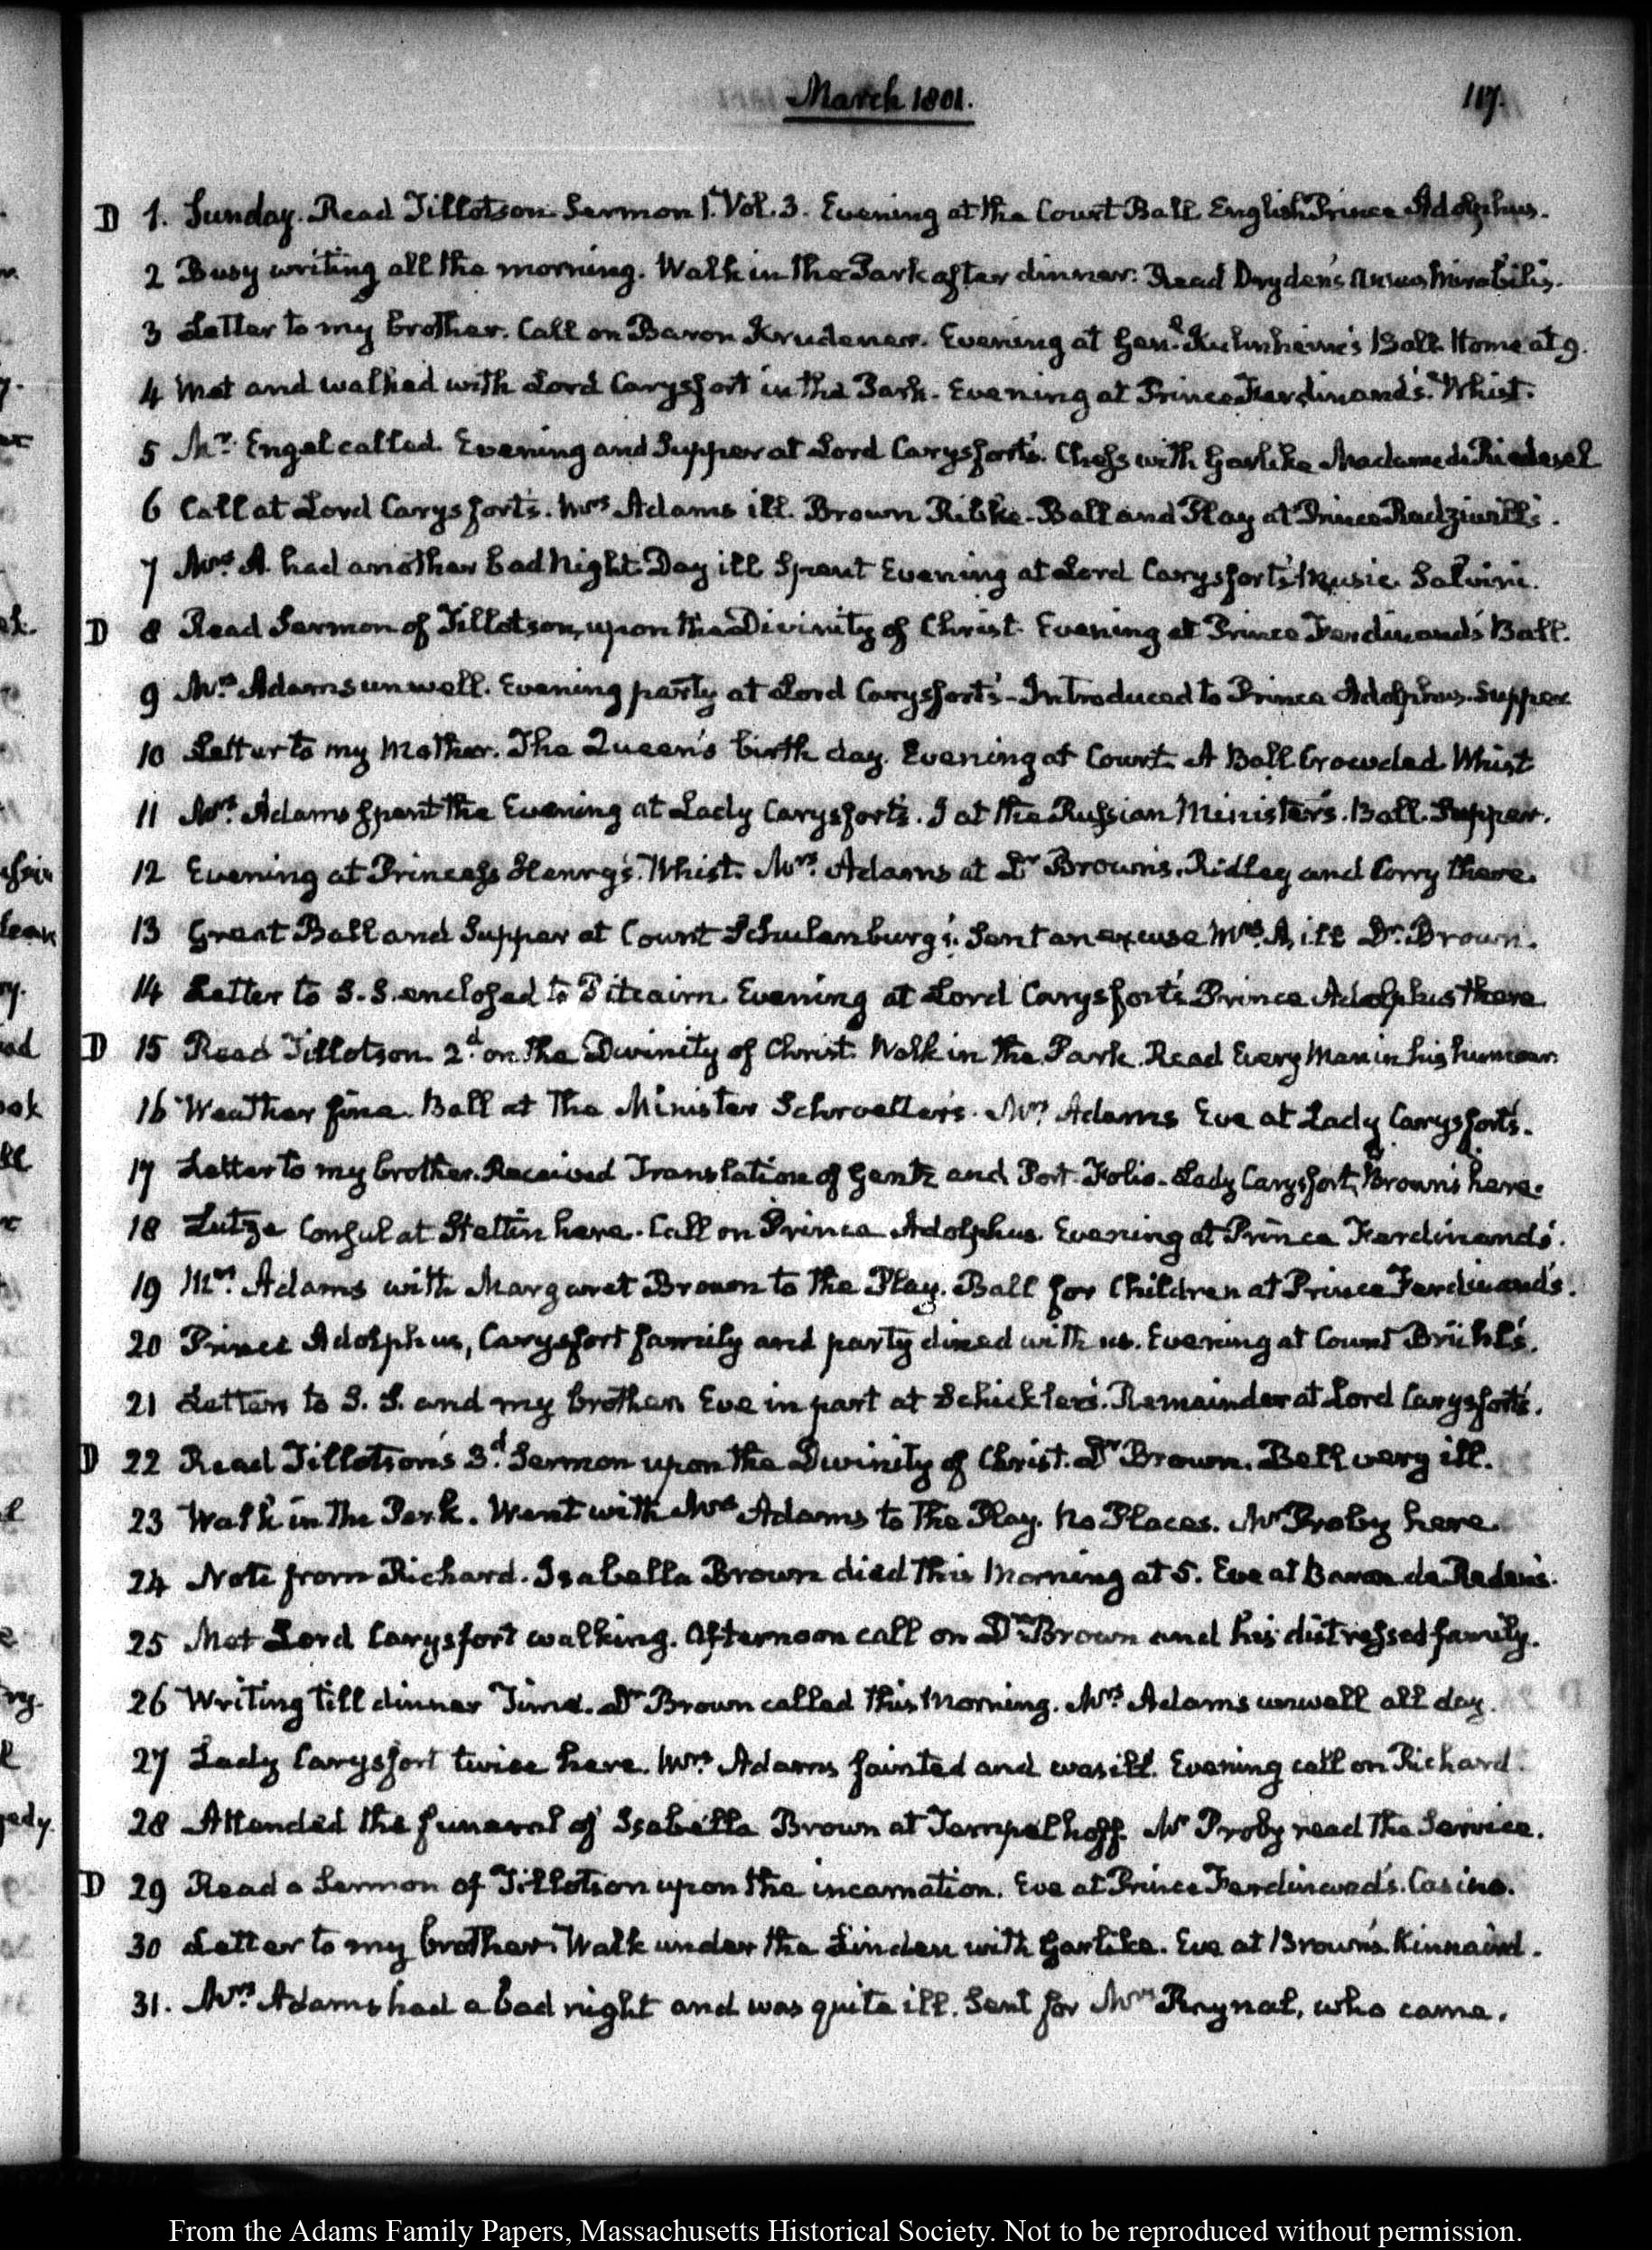 March 1801.
117.
D 1. Sunday. Read Tillotson Sermon 1. Vol. 3. Evening at the Court Ball English Prince Adolphus.
2 Busy writing all the morning. Walk in the Park after dinner. Read Dryden's Annus Mirabilis.
3 Letter to my brother. Call on Baron Krudener. Evening at Genl. Kuhnheim's Ball. Home at 9.
4 Met and walked with Lord Carysfort in the Park. Evening at Prince Ferdinand's. Whist.
5 Mr. Engel called. Evening and Supper at Lord Carysfort's. Chess with Garlike Madame de Riedesel
6 Call at Lord Carysfort's. Mrs Adams ill. Brown Ribke. Ball and Play at Prince Radziwill's.
7 Mrs. A. had another bad night. Day ill Spent Evening at Lord Carysfort's. Music. Salvini.
D 8 Read Sermon of Tillotson, upon the Divinity of Christ. Evening at Prince Ferdinand's Ball.
9 Mrs. Adams unwell. Evening party at Lord Carysfort's - Introduced to Prince Adolphus. Supper
10 Letter to my Mother. The Queen's birth day. Evening at Court. A Ball Crowded Whist
11 Mrs. Adams spent the Evening at Lady Carysfort's. I at the Russian Minister's. Ball. Supper.
12 Evening at Princess Henry's. Whist. Mrs. Adams at Dr Brown's. Ridley and Corry there.
13 Great Ball and Supper at Count Schulenburg's. Sent an excuse Mrs. A, ill Dr. Brown.
14 Letter to S.S. enclosed to Pitcairn. Evening at Lord Carysfort's Prince Adolphus there
D 15 Read Tillotson. 2d. on the Divinity of Christ. Walk in the Park. Read Every Man in his humour.
16 Weather fine. Ball at the Minister Schroetter's. Mrs Adams Eve at Lady Carysfort's.
17 Letter to my brother. Received Translation of Gentz and Port-Folio. Lady Carysfort, Brown's here.
18 Lutze Consul at Stettin here. Call on Prince Adolphus. Evening at Prince Ferdinand's.
19 Mrs. Adams with Margaret Brown to the Play. Ball for Children at Prince Ferdinand's.
20 Prince Adolphus, Carysfort family and party dined with us. Evening at Count Brühl's.
21 Letters to S. S. and my brother. Eve in part at Schickler's. Remainder at Lord Carysfort's.
D 22 Read Tillotson's 3d. Sermon upon the Divinity of Christ. Dr Brown. Bell very ill.
23 Walk in the Park. Went with Mrs Adams to the Play. No Places. Mr Proby here.
24 Note from Richard. Isabella Brown died this Morning at 5. Eve at Baron de Reden's.
25 Met Lord Carysfort walking. Afternoon call on Dr. Brown and his distressed family.
26 Writing till dinner Time. Dr Brown called this Morning. Mrs Adams unwell all day.
27 Lady Carysfort twice here. Mrs. Adams fainted and was ill. Evening call on Richard.
28 Attended the funeral of Isabella Brown at Tempelhoff. Mr Proby read the Service.
D 29 Read a Sermon of Tillotson upon the incarnation. Eve at Prince Ferdinand's. Casino.
30 Letter to my brother. Walk under the Linden with Garlike. Eve at Brown's. Kinnaird.
31. Mrs. Adams had a bad night and was quite ill. Sent for Mrs Raynal, who came.
From the Adams Family Papers, Massachusetts Historical Society. Not to be reproduced without permission.